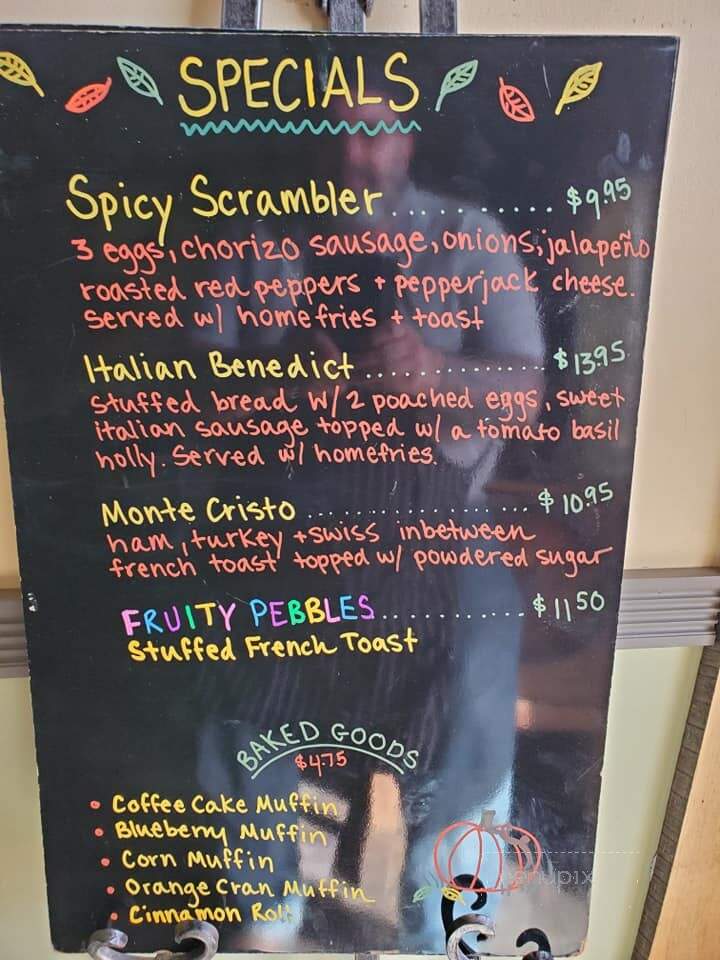 SPECIALS
Spicy Scrambler.......... $9.95
3 eggs, chorizo sausage, onions, jalapeño
roasted red peppers + pepperjack cheese.
Served w/ homefries + toast
Italian Benedict............... $13.95
stuffed bread w/ 2 poached eggs, sweet
italian sausage topped w/ a tomato basil
holly. Served w/ homefries.
Monte Cristo .................... $10.95
ham, turkey + swiss inbetween
french toast topped w/ powdered sugar
FRUITY PEBBLES............. $11.50
Stuffed French Toast
BAKED GOODS
$4.75
• Coffee Cake Muffin
• Blueberry Muffin
• Corn Muffin
• Orange Cran Muffin
• Cinnamon Roll